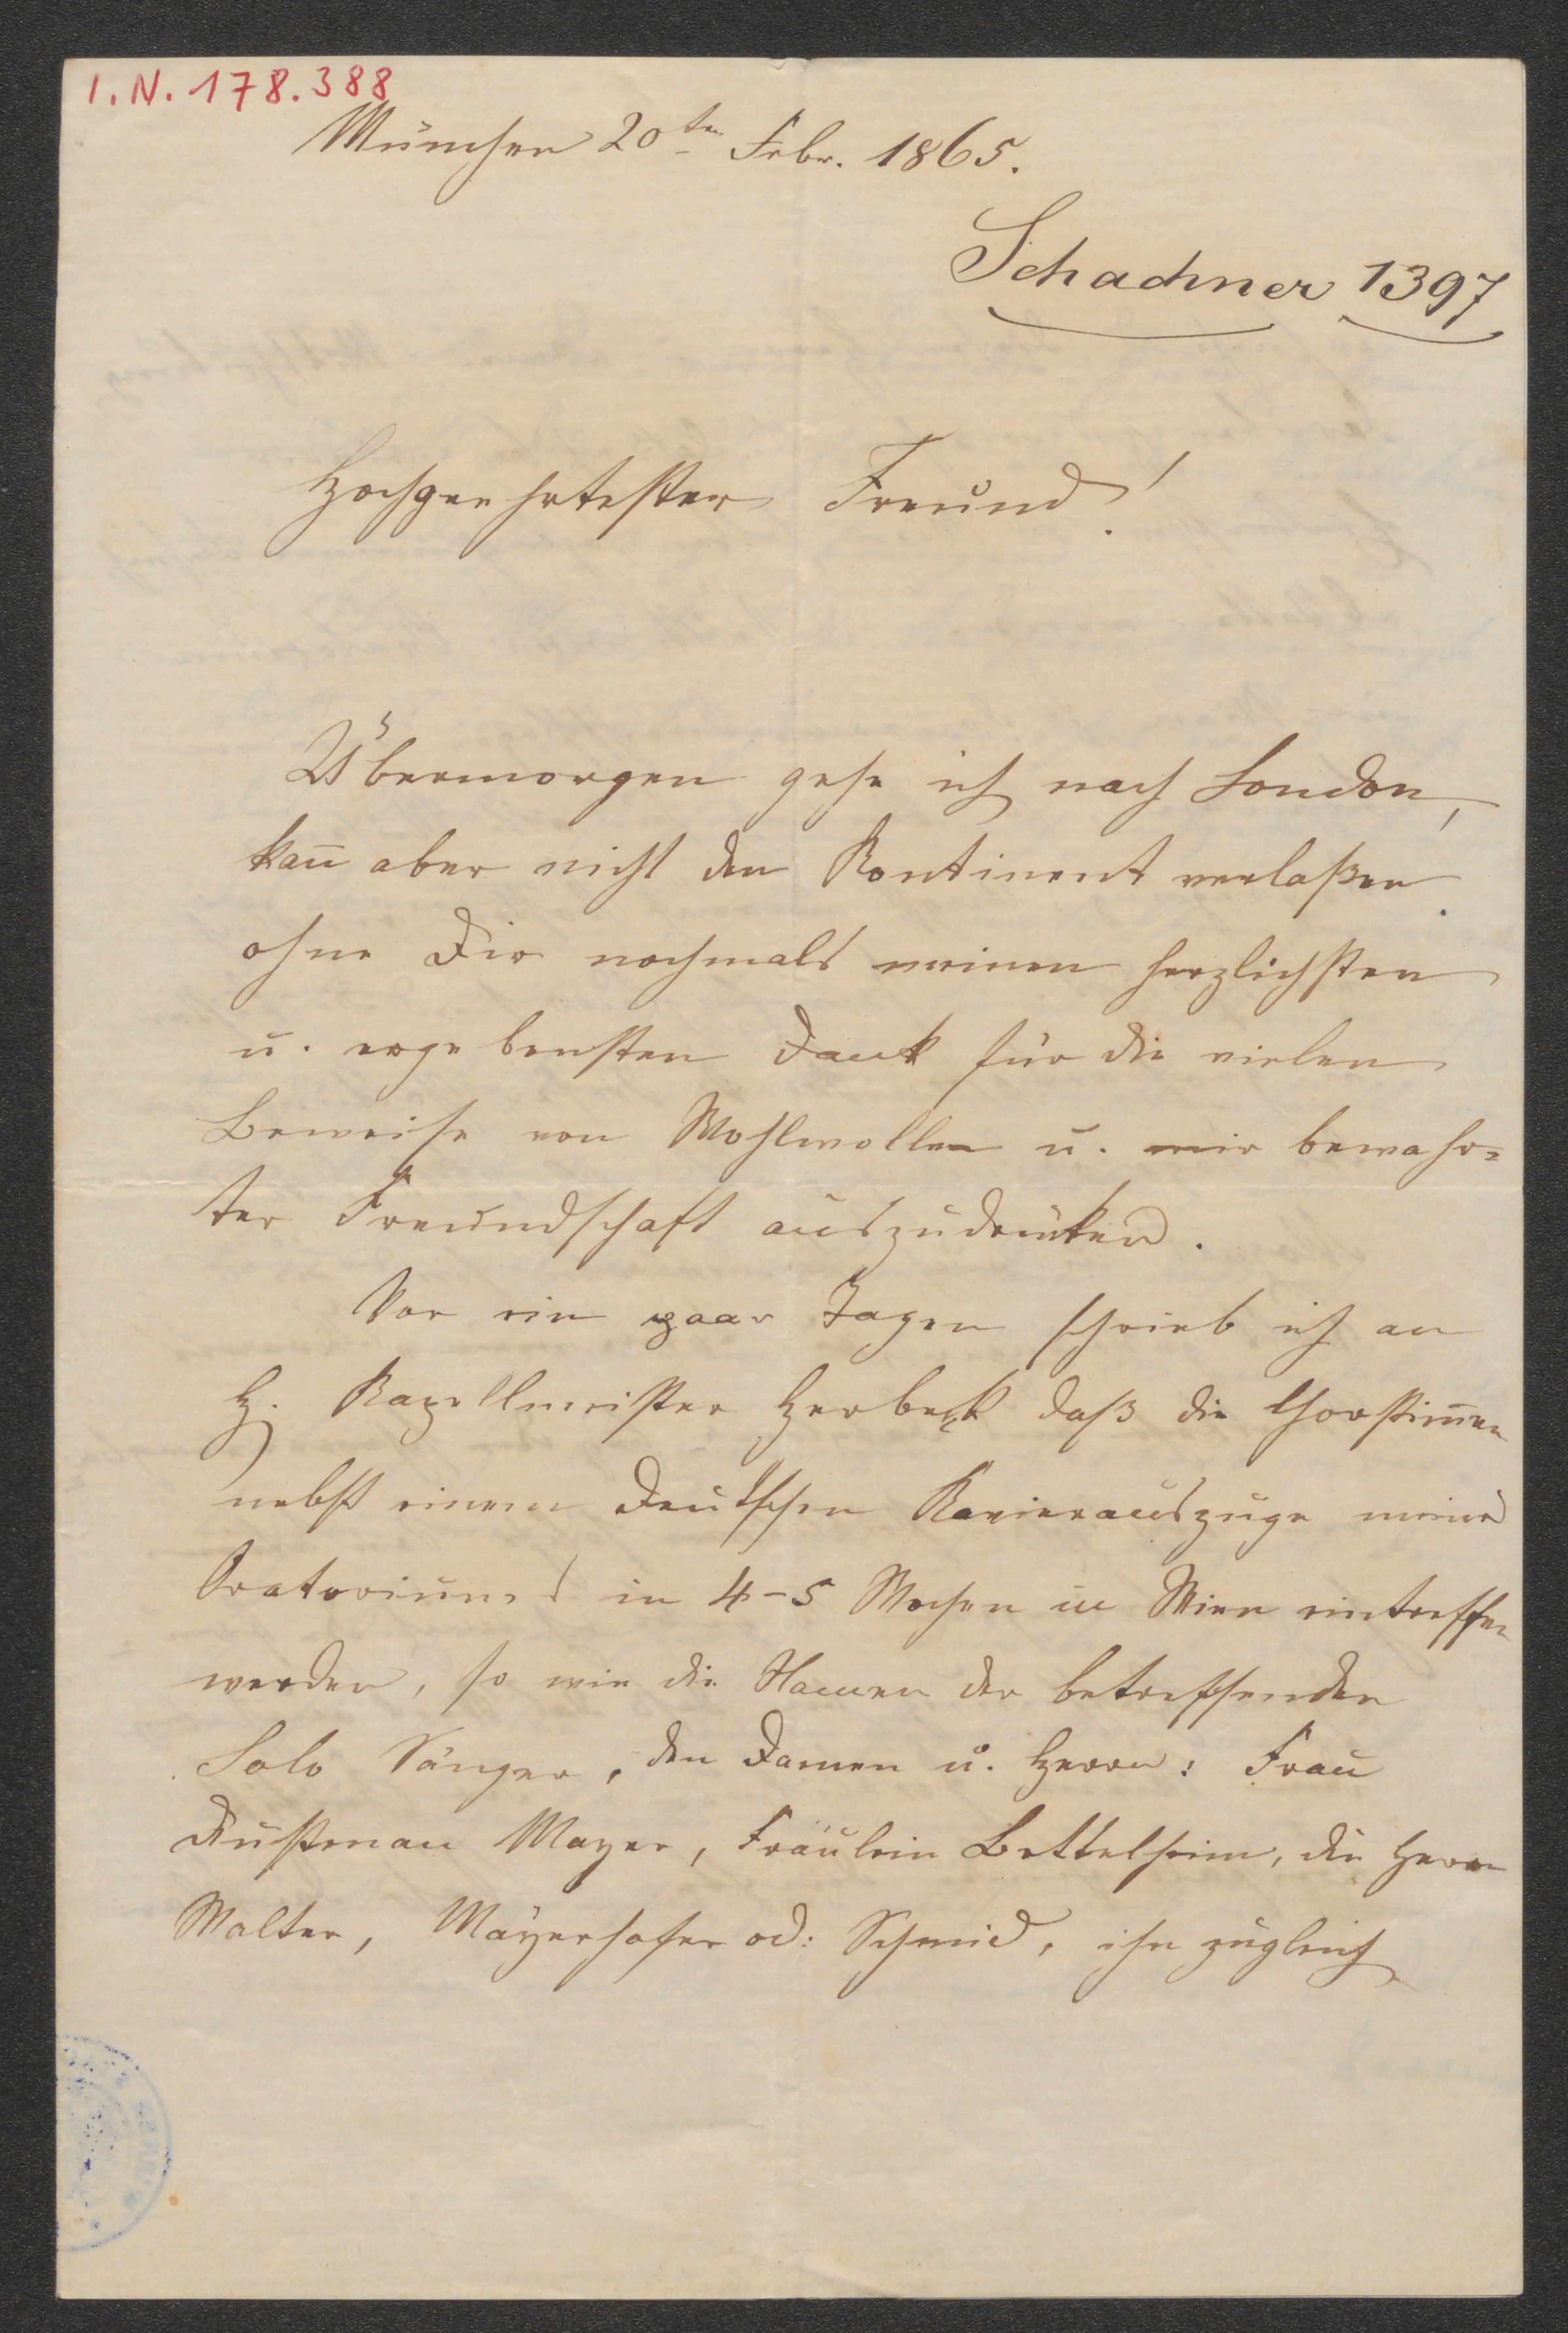 I.N. 178.388
München 20ten Febr. 1865.
Schachner 1397
Hochgeehrtester Freund!
Übermorgen gehe ich nach London,
kan̄ aber nicht den Kontinent verlaßen
ohne Dir nochmals meinen herzlichsten
u. ergebensten Dank für die vielen
Beweise von Wohlwollen u. mir bewahr=
ter Freundschaft auszudrücken.
Vor ein paar Tagen schrieb ich an
H. Kapellmeister Herbeck daß die Chorstim̄en
nebst einem deutschen Klavierauszuge meines
Oratoriums in 4-5 Wochen in Wien eintreffen
werden, so wie die Namen der betreffenden
Solo Sänger, den Damen u. Herrn: Frau
Dustman Mayer, Fräulein Bettelheim, die Herrn
Walter, Mayerhofer od: Schmid, ihn zugleich